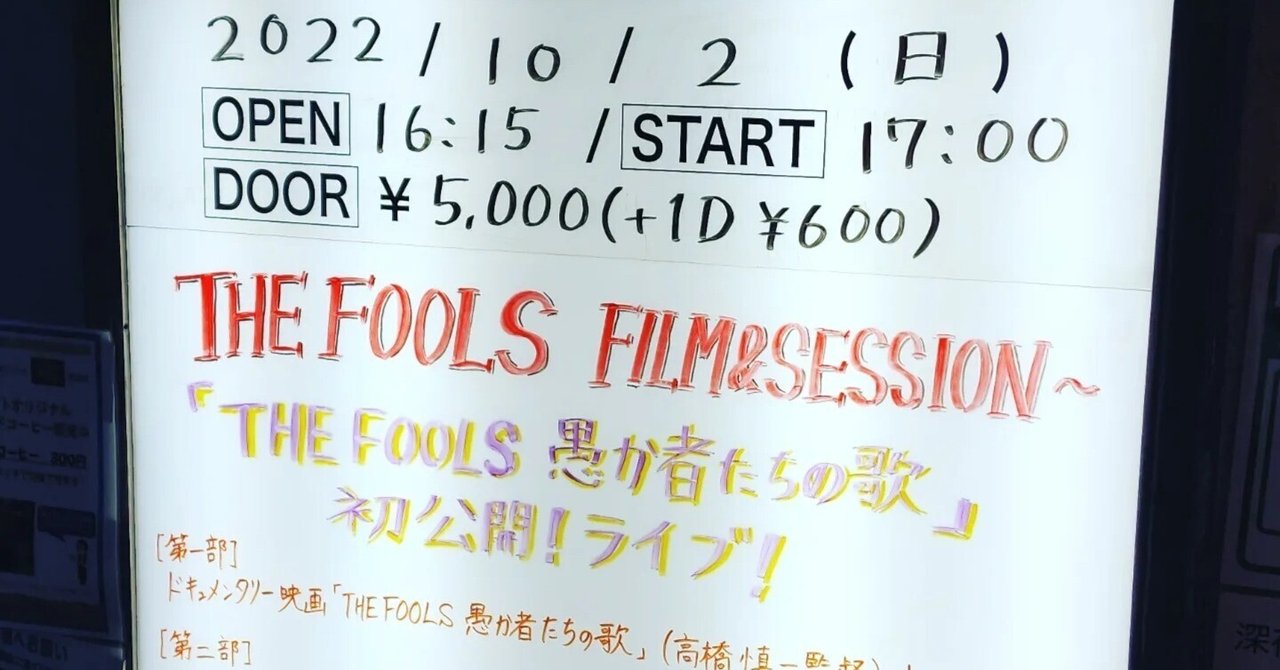 2022 / 10 / 2 (日)
OPEN 16:15 / START 17:00
DOOR ¥5,000(+1D ¥600)
THE FOOLS FILM&SESSION~
「THE FOOLS 愚か者たちの歌」
初公開!ライブ!
[第一部]
ドキュメンタリー映画「THE FOOLS 愚か者たちの歌」(高橋慎一監督)
[第二部]